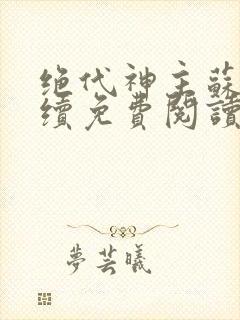 绝代神主蘇
續免費閱讀
夢芸曦